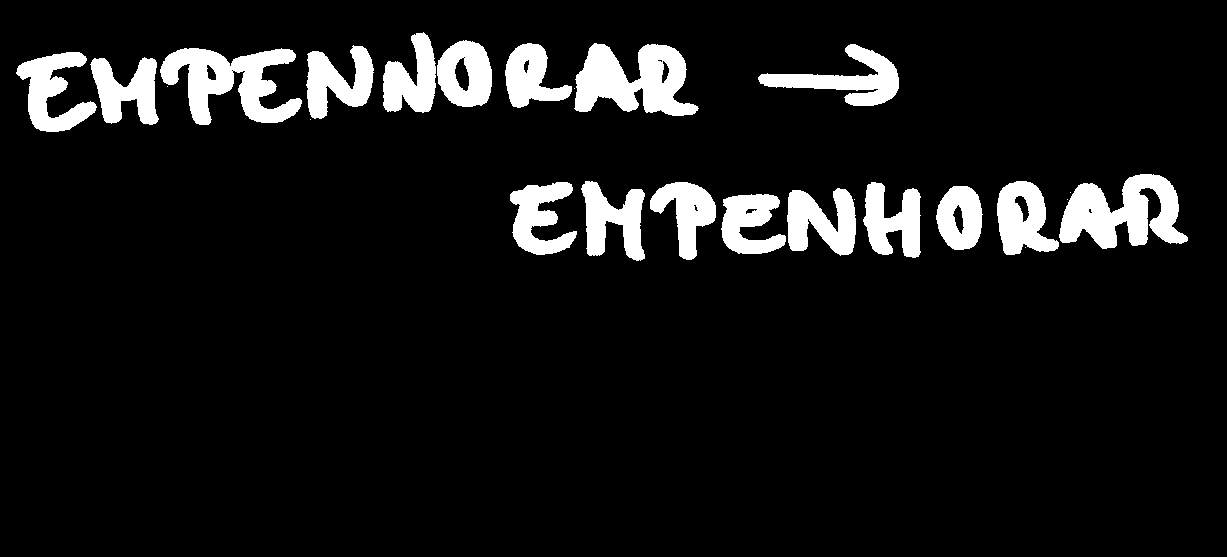 EMPENNORAR →
EMPENHORAR